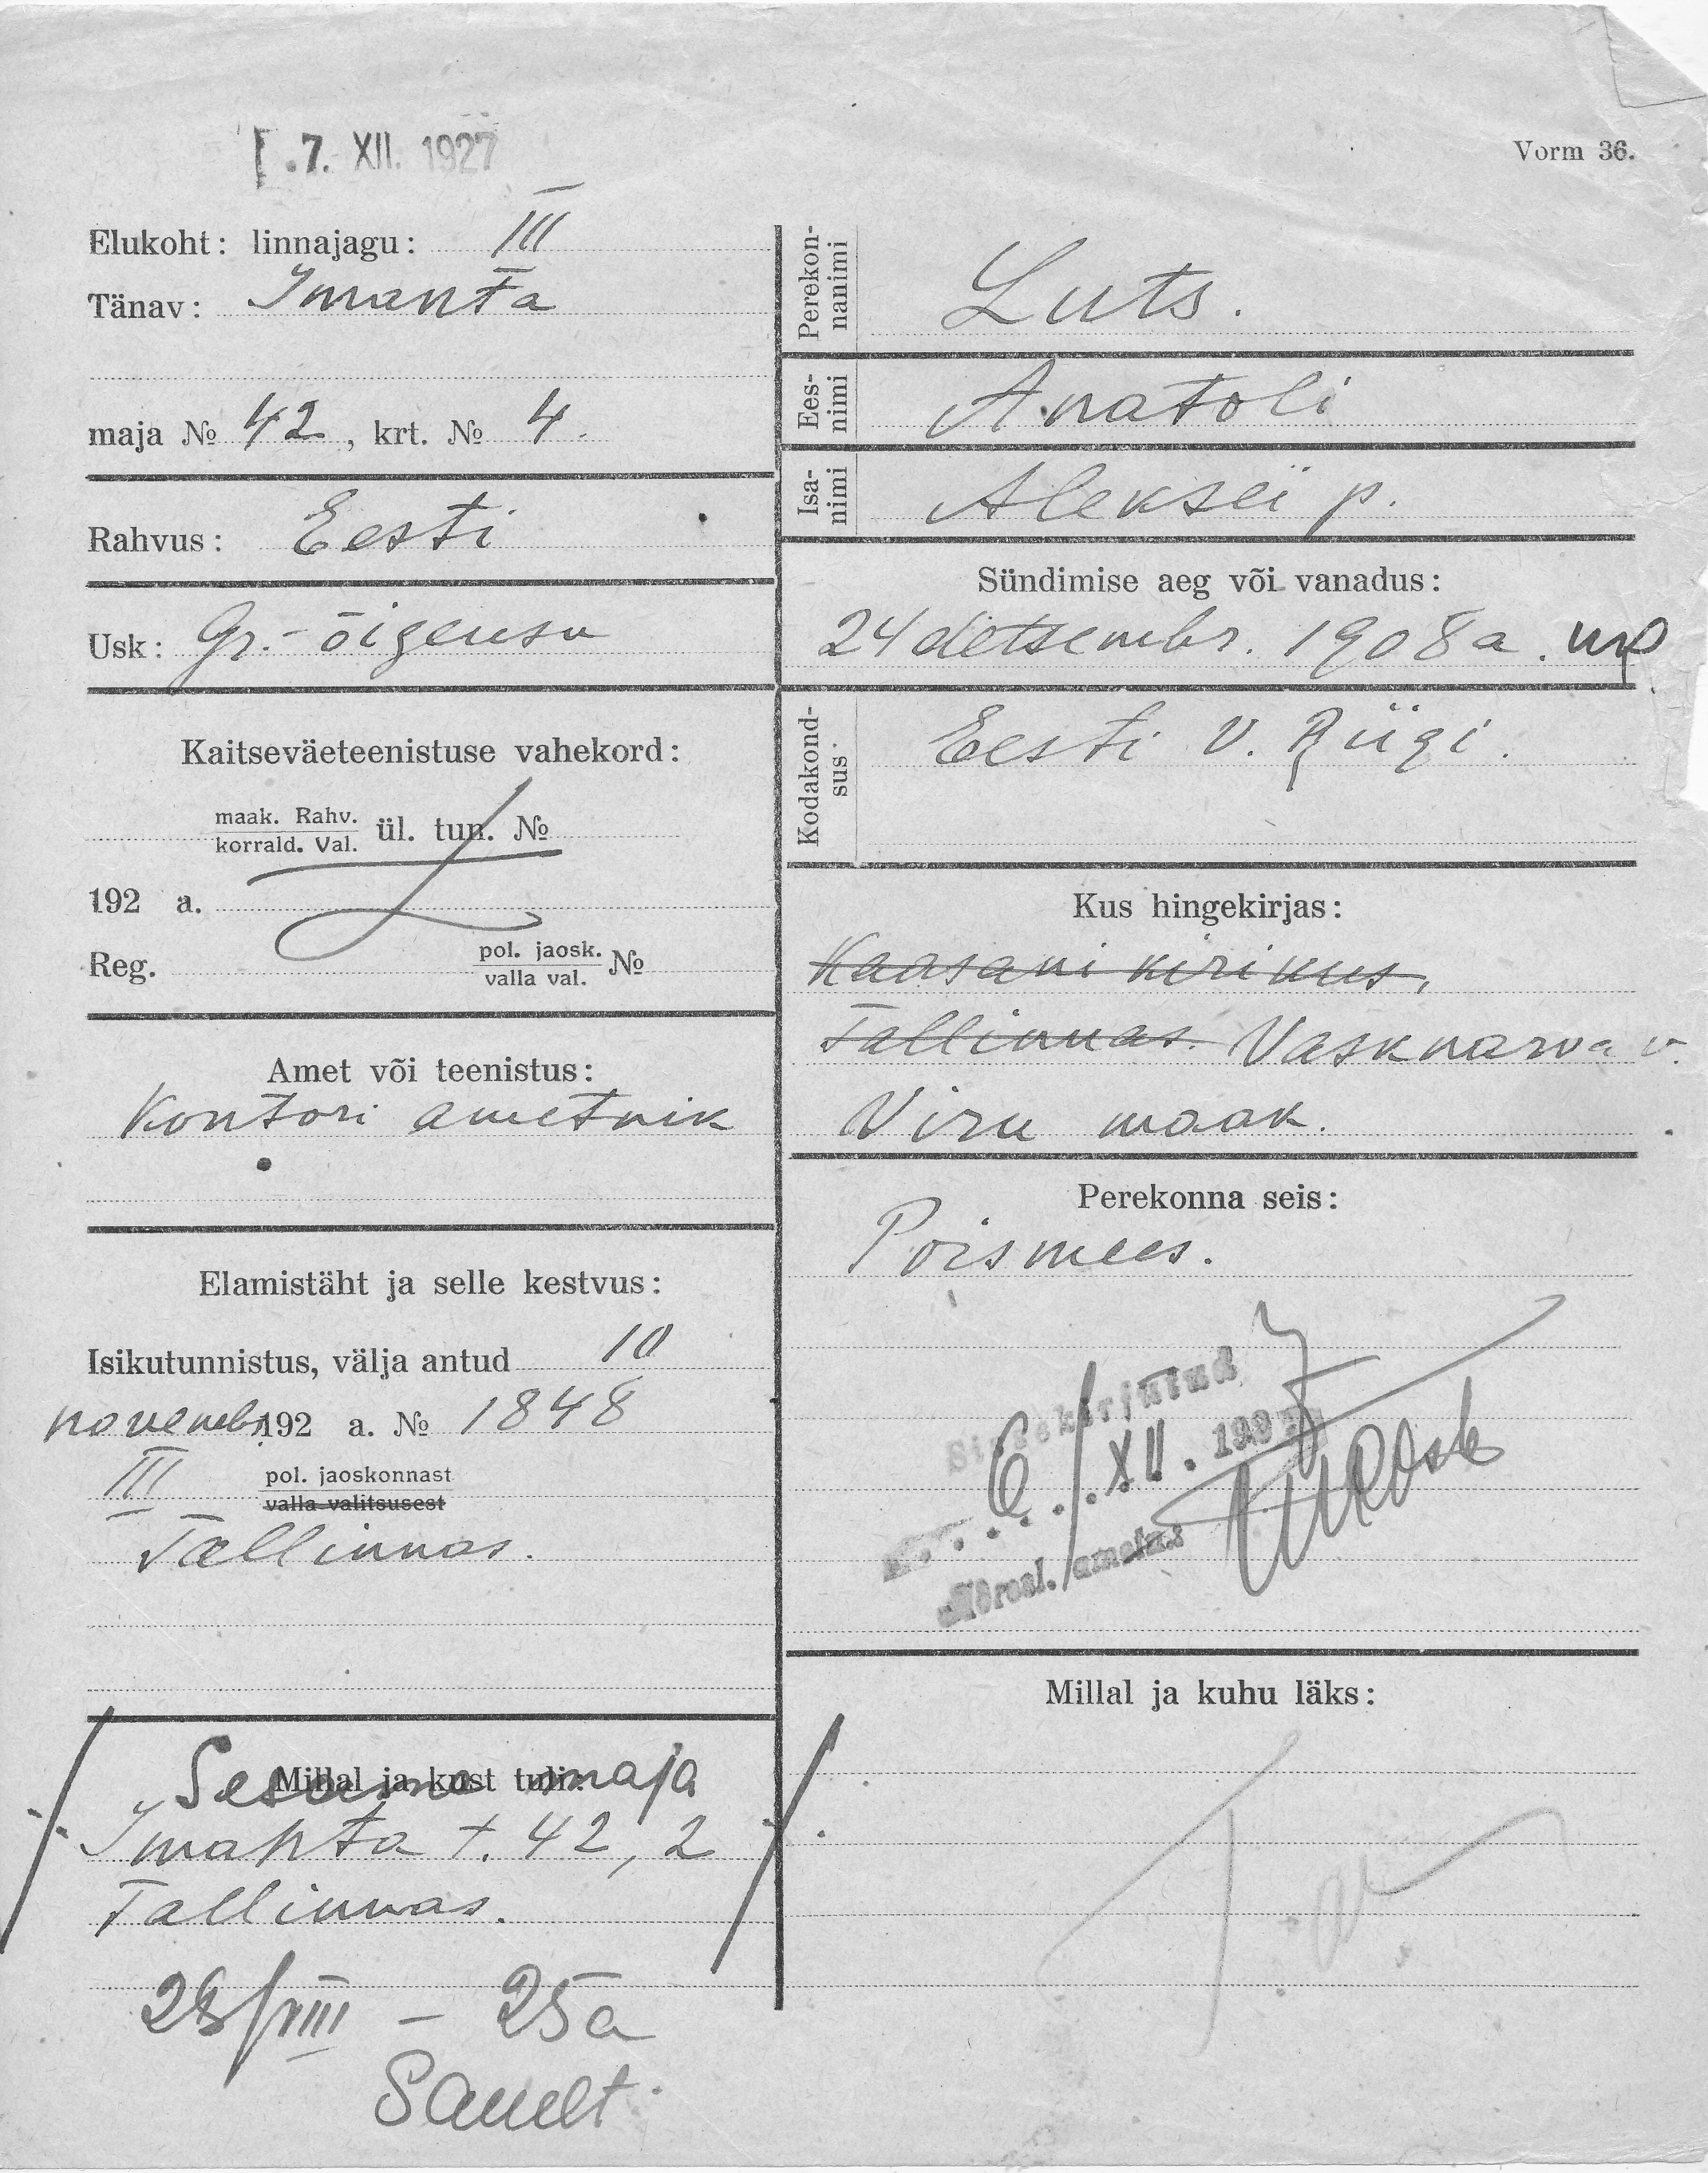 7. XII. 1927
Vorm 36.
Elukoht: linnajagu: III
Tänav: Imanta
maja № 42, krt. № 4.
Rahvus: Eesti
Usk: Gr.-õigeusu
Kaitseväeteenistuse vahekord:
maak. Rahv.
korrald. Val. ül. tun. №
192 a.
Reg. pol. jaosk. №
valla val.
Amet või teenistus:
Kontori ametnik
Elamistäht ja selle kestvus:
Isikutunnistus, välja antud 10
novembr. 192 a. № 1848
III pol. jaoskonnast
valla valitsusest
Tallinnas.
Millal ja kust tuli:
Sesama maja
Imanta t. 42, 2
Tallinnas.
28/VIII - 25a
Perekon-
nanimi
Luts.
Ees-
nimi
Anatoli
Isa-
nimi
Aleksei p.
Sündimise aeg või vanadus:
24 detsembr. 1908 a.
Kodakond-
sus
Eesti V. Riigi.
Kus hingekirjas:
Kaasani kirikus,
Tallinnas. Vasknarva v.
Viru maak.
Perekonna seis:
Poismees.
Sissekirjutud
6/XII. 1927
Millal ja kuhu läks: